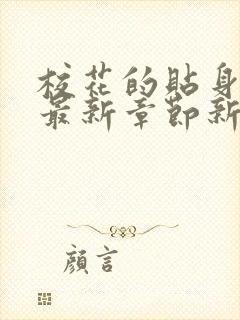 校花的貼身
最新章節新
顏言